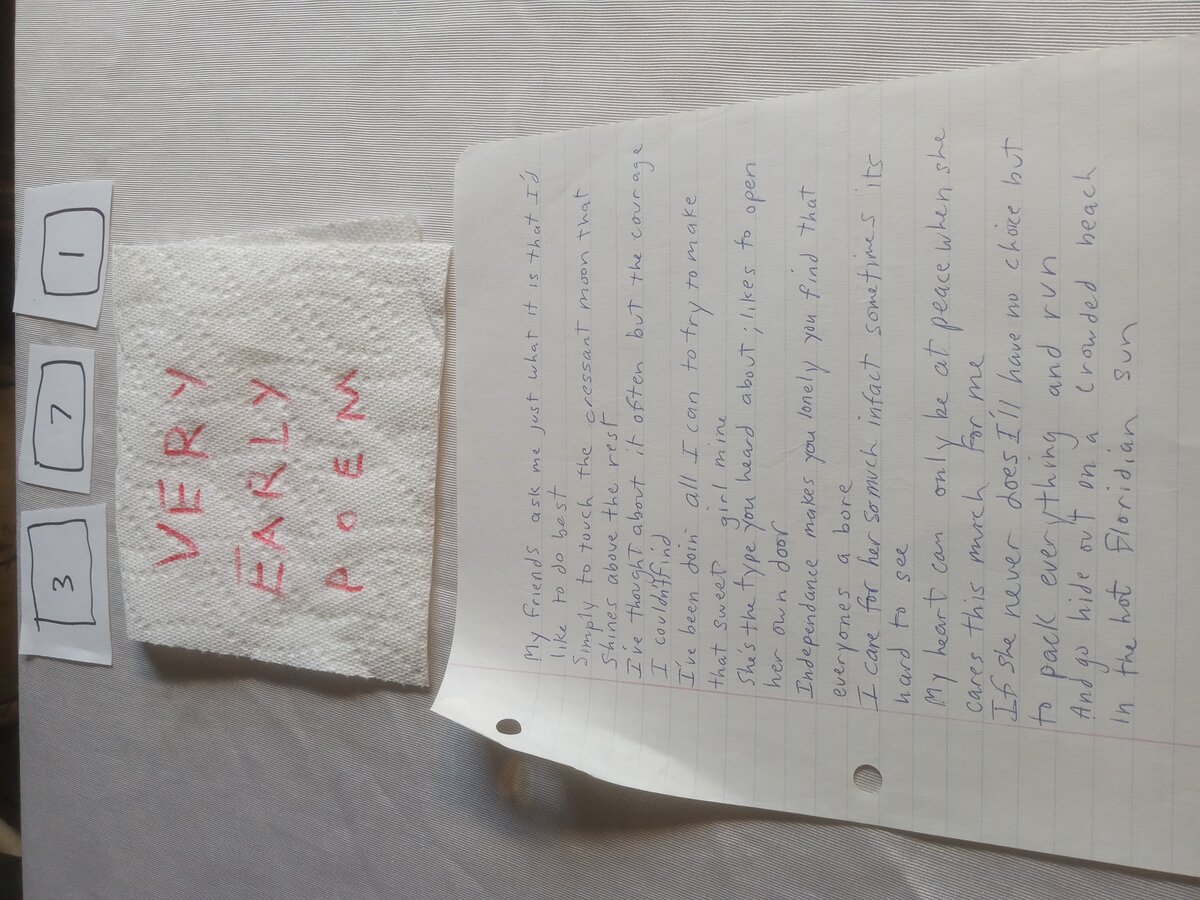 3 7 1
VERY
EARLY
POEM
My friends ask me just what it is that I'd
like to do best
Simply to touch the cressant moon that
Shines above the rest
I've thought about it often but the courage
I couldn't find
I've been doin all I can to try to make
that sweet girl mine
She's the type you heard about; likes to open
her own door
Independance makes you lonely you find that
everyones a bore
I care for her somuch infact sometimes its
hard to see
My heart can only be at peace when she
cares this much for me
If she never does I'll have no choice but
to pack everything and run
And go hide out on a crowded beach
in the hot Floridian sun